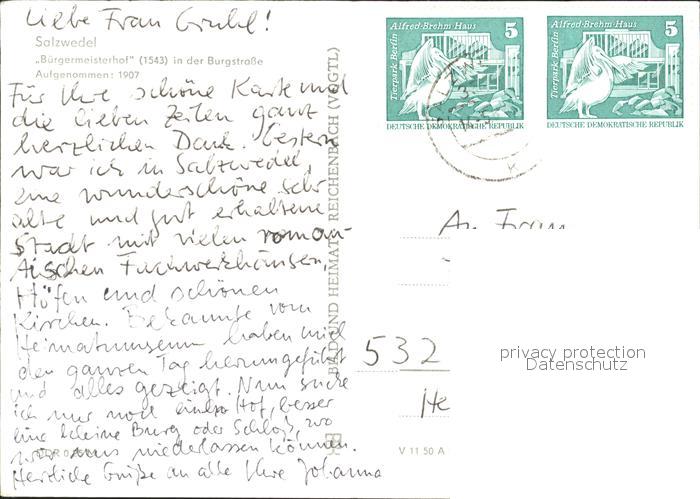 Liebe Frau Grubel!
Salzwedel
„Bürgermeisterhof" (1543) in der Burgstraße
Aufgenommen: 1907
Für Ihre schöne Karte und
die lieben Zeilen ganz
herzlichen Dank. Gestern
war ich in Salzwedel,
eine wunderschöne sehr
alte und gut erhaltene
Stadt mit vielen roman-
tischen Fachwerkhäusern,
Höfen und schönen
Kirchen. Bekannte vom
Heimatmuseum haben mich
den ganzen Tag herumgeführt
und alles gezeigt. Nun suche
ich nur noch einen Hof, besser
eine kleine Burg oder Schloß, wo
wir uns niederlassen können.
Herzliche Grüße an alle Ihre Johanna
BILD UND HEIMAT REICHENBACH (VOGTL)
Alfred-Brehm-Haus 5
Tierpark Berlin
DEUTSCHE DEMOKRATISCHE REPUBLIK
Alfred-Brehm-Haus 5
Tierpark Berlin
DEUTSCHE DEMOKRATISCHE REPUBLIK
An Frau
532
He
privacy protection
Datenschutz
V 11 50 A